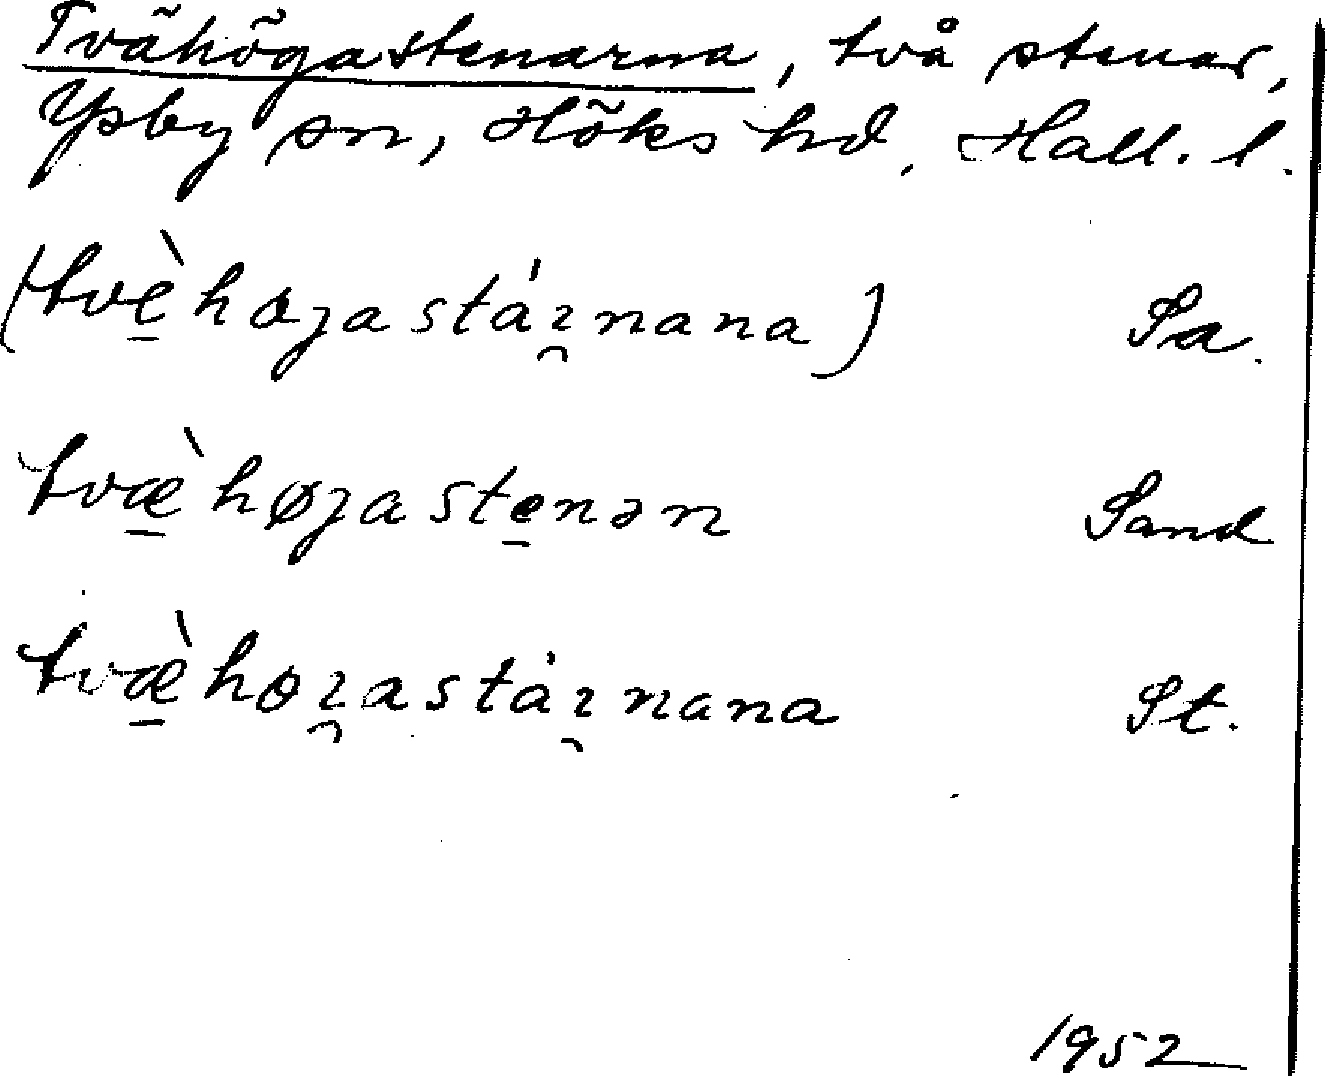 Tvähögastenarna, två stenar,
Ypsby sn, Höks hd, Hall. l.
(tvè̱høȷastáı̯nana) Sa.
tvæ̱̀høȷaste̱nən Sand
tvæ̱̀høı̯astáı̯nana St.
1952